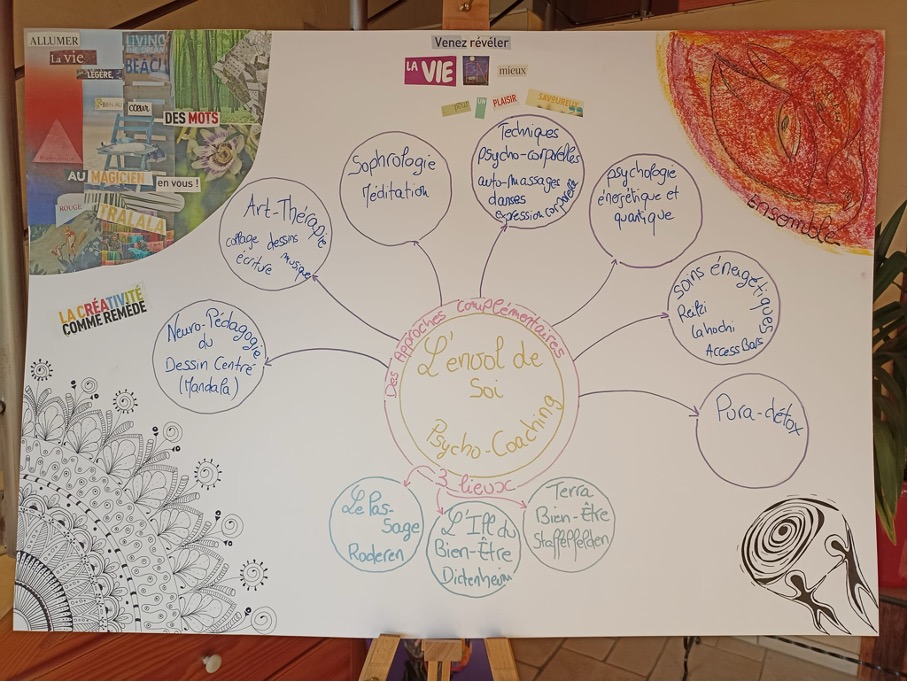 ALLUMER
La vie
LÉGÈRE,
LIVING
THE DREAM
BEACH
cœur
DES MOTS
AU MAGICIEN en vous !
ROUGE
TRALALA
Venez révéler
LA VIE mieux
pour UN PLAISIR SAVOUREUX
Ensemble
LA CRÉATIVITÉ
COMME REMÈDE
Neuro-Pédagogie
du
Dessin Centré
(Mandala)
Art-Thérapie
collage dessins
écriture musique
Sophrologie
Méditation
Techniques
psycho-corporelles
auto-massages
danses
expression corporelle
psychologie
énergétique et
quantique
Soins énergétiques
Reiki
Lahochi
Access Bars
Pura-détox
Des Approches complémentaires
L'envol de
Soi
Psycho-Coaching
3 lieux
Le Pas-
sage
Roderen
L'Ill du
Bien-Être
Didenheim
Terra
Bien-Être
Staffelfelden